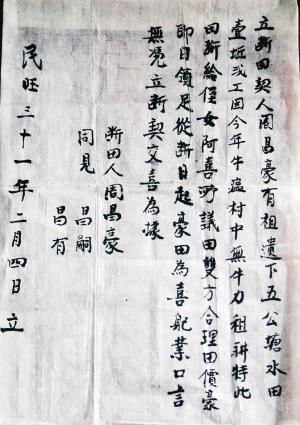 立断田契人周昌豪有祖遗下五公塘水田
壹坵弍工因今年牛瘟村中無牛力租耕特此
田断給侄女阿喜所議田雙方合理田價豪
即日領足從断日起豪田為喜耽業口言
無凭立断契交喜為據
断田人周昌豪
同見 昌嗣
昌有
民国三十一年二月四日立